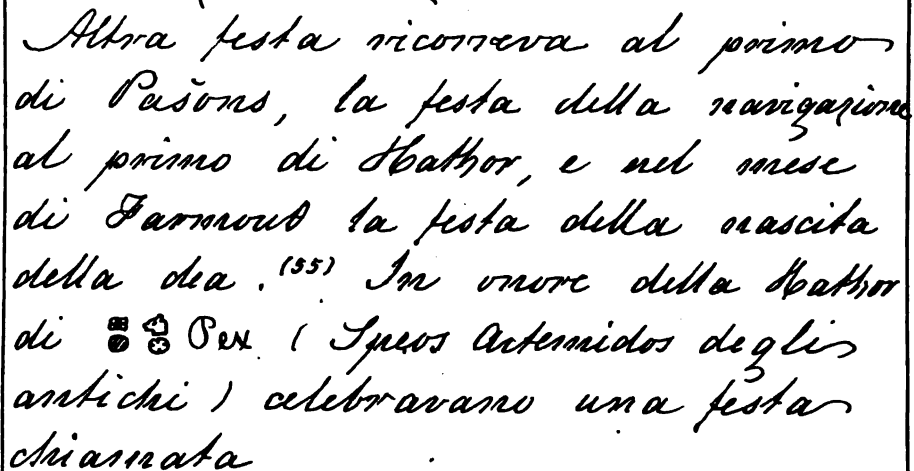 Altra festa ricorreva al primo
di Pašons, la festa della navigazione
al primo di Hathor, e nel mese
di Farmouθ la festa della nascita
della dea.(55) In onore della Hathor
di Pex (Speos Artemidos degli
antichi) celebravano una festa
chiamata